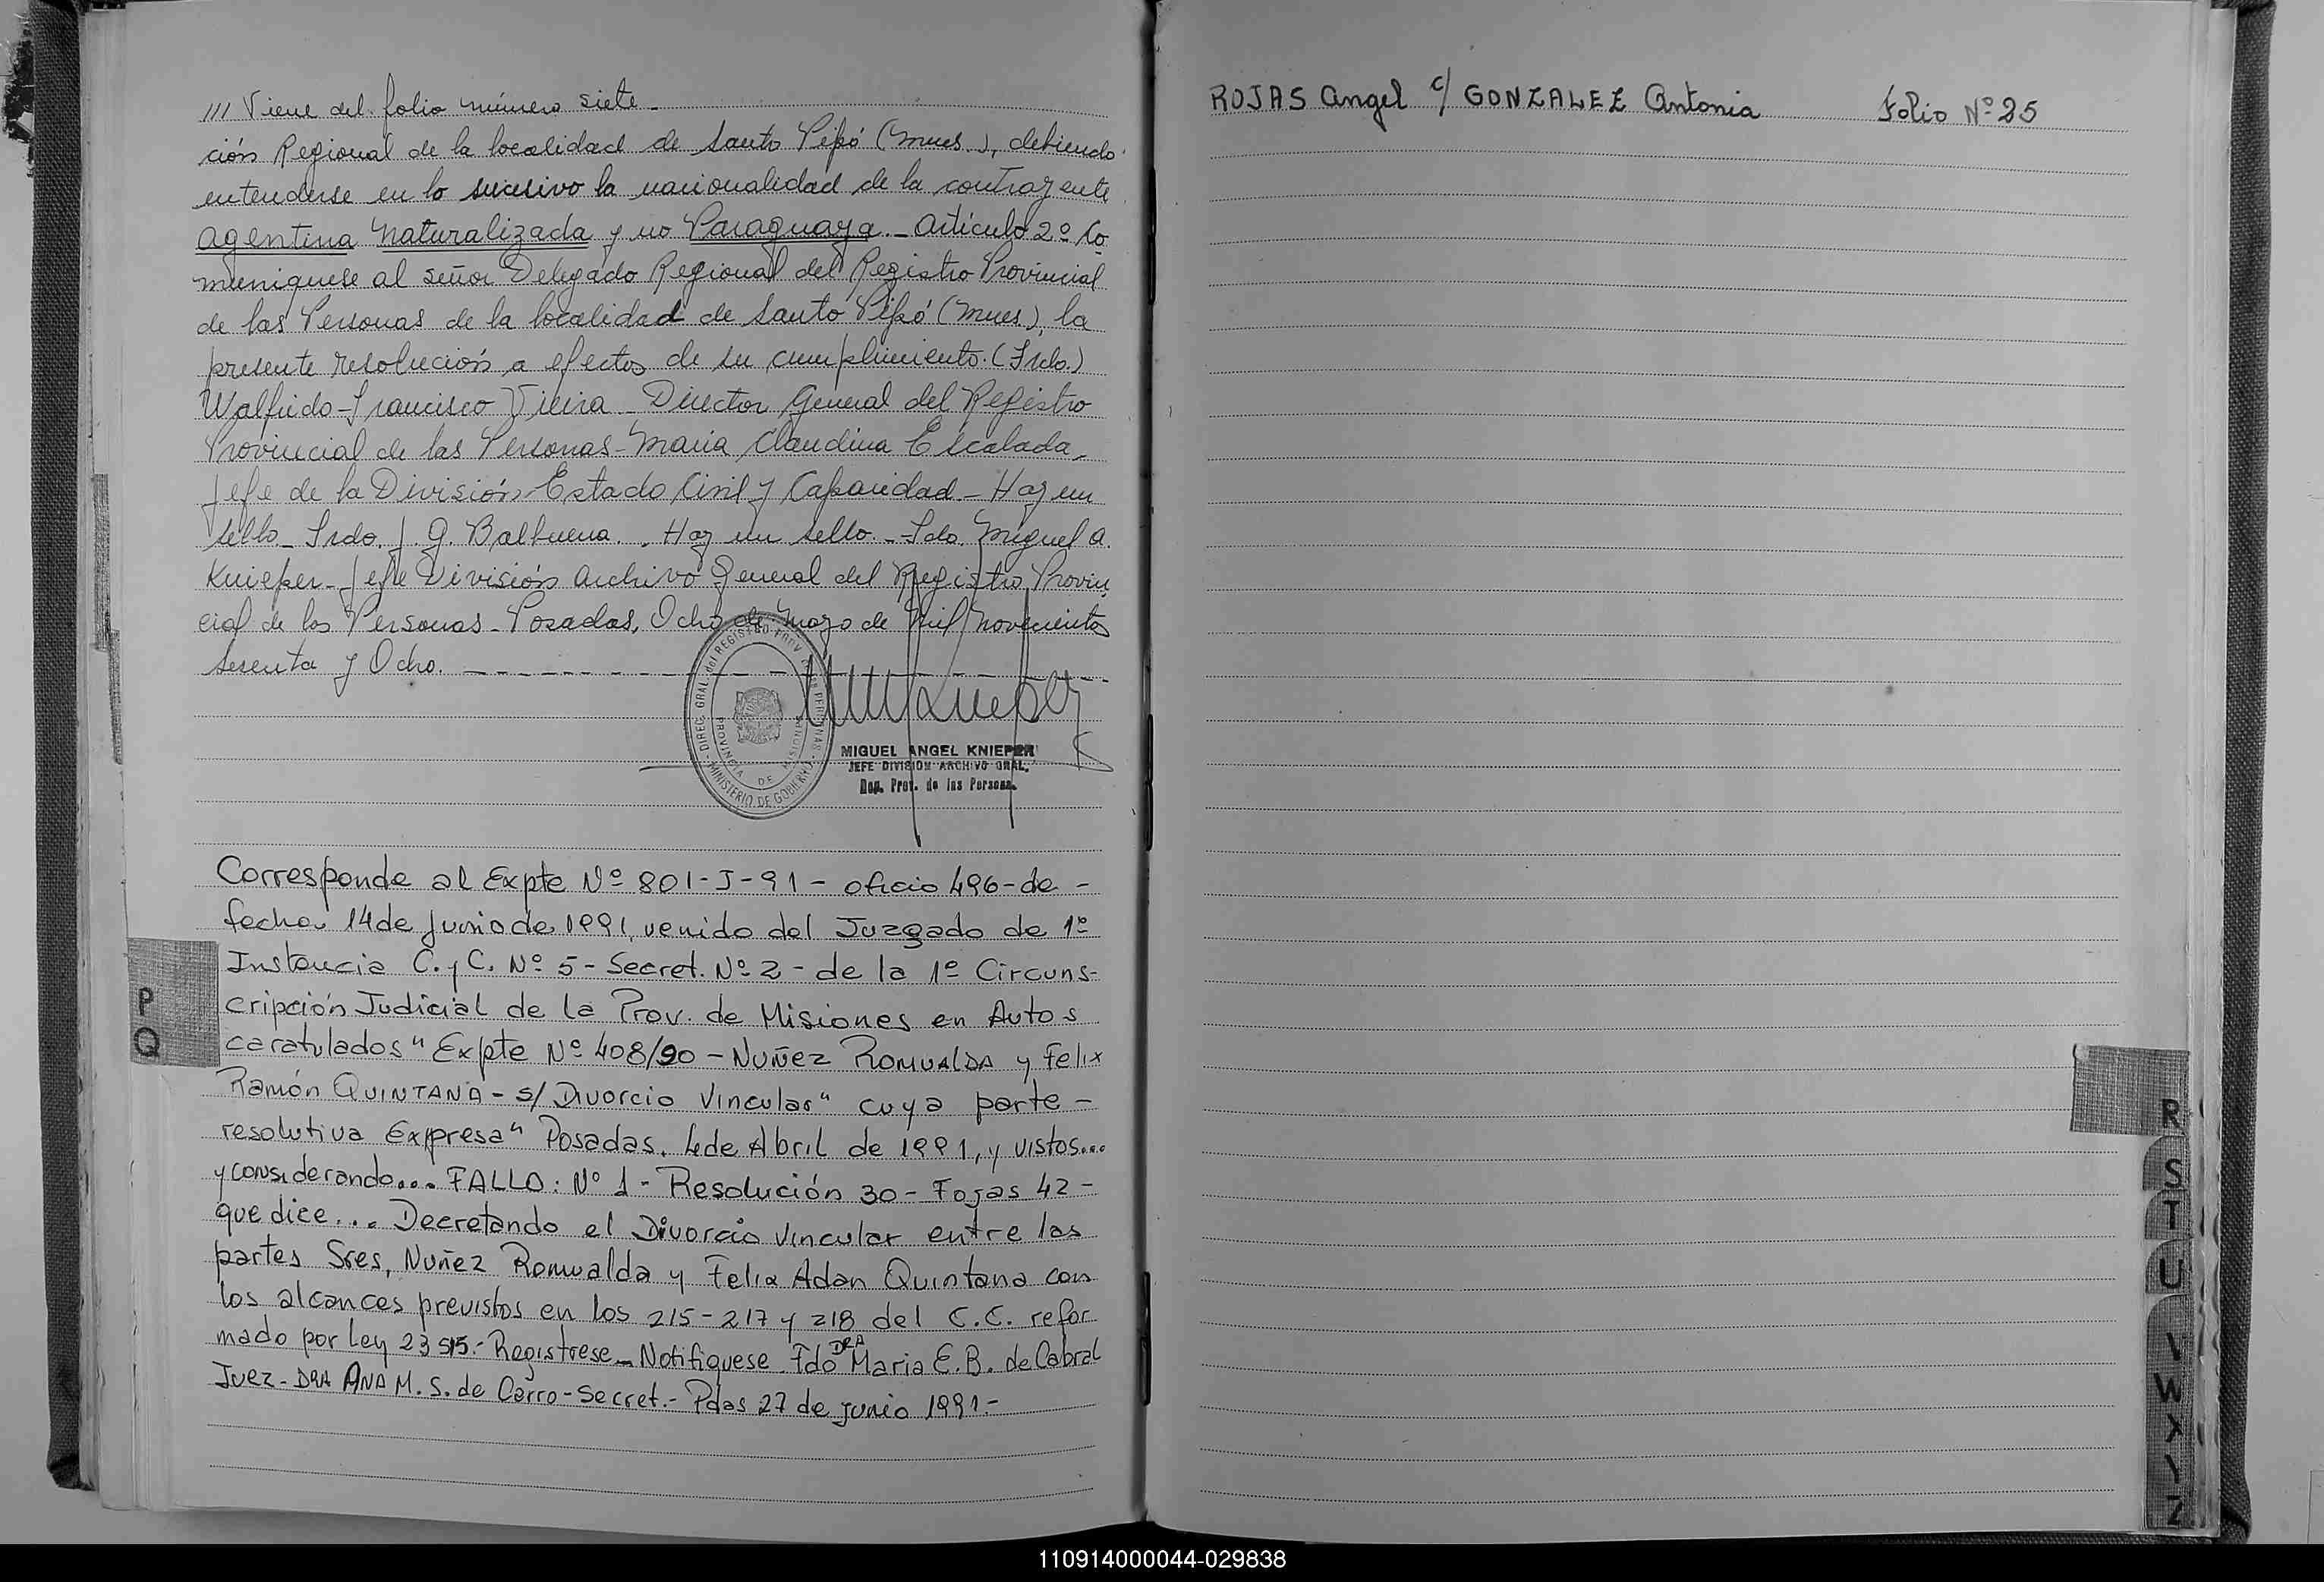 /// Viene del folio número siete_
ción Regional de la localidad de Santo Pipó (Mnes.), debiendo
entenderse en lo sucesivo la nacionalidad de la contrayente
Agentina Naturalizada y no Paraguaya._ Artículo 2º Co
muniquese al señor Delegado Regional del Registro Provincial
de las Personas de la localidad de Santo Pipó (Mnes.), la
presente resolución a efectos de su cumplimiento. (Frdo.)
Walfrido-Francisco Vieira_ Director General del Registro
Provincial de las Personas_ Maria Claudina Escalada_
Jefe de la División Estado Civil y Capacidad_ Hay un
sello_ Frdo. J. G. Balbuena. . Hay un sello._ Fdo. Miguel A.
Knieper_ Jefe División Archivo General del Registro Provin
cial de las Personas_ Posadas, Ocho de Mayo de Mil Novecientos
Sesenta y Ocho. _ _ _ _ _ _ _ _ _ _ _ _
DIREC. GRAL. del REGISTRO PROV. DE LAS PERSONAS
PROVINCIA DE MISIONES
MINISTERIO DE GOBIERNO
MIGUEL ANGEL KNIEPER
JEFE DIVISION ARCHIVO GRAL.
Reg. Prov. de las Personas
Corresponde al Expte Nº 801-J-91 - oficio 496-de -
fecha 14 de Junio de 1991, venido del Juzgado de 1º
Instancia C. y C. Nº 5 - Secret. Nº 2 - de la 1º Circuns-
cripción Judicial de la Prov. de Misiones en Autos
caratulados "Expte Nº 408/90 - NUÑEZ ROMUALDA y Felix
Ramón QUINTANA - s/ Divorcio Vincular" cuya parte -
resolutiva Expresa" Posadas, 4 de Abril de 1991, y vistos....
y considerando... FALLO: Nº 1 - Resolución 30 - Fojas 42 -
que dice... Decretando el Divorcio Vincular entre las
partes Sres, Nuñez Romualda y Felix Adan Quintana con
los alcances previstos en los 215-217 y 218 del C.C. refor
mado por Ley 23515.- Registrese_ Notifiquese_ Fdo DRA Maria E.B. de Cabral
Juez - DRA ANA M. S. de Carro - Secret.- Pdas 27 de junio 1991.-
P
Q
ROJAS Angel c/ GONZALEZ Antonia Folio Nº 25
R
S
T
U
V
W
X
Y
Z
110914000044-029838